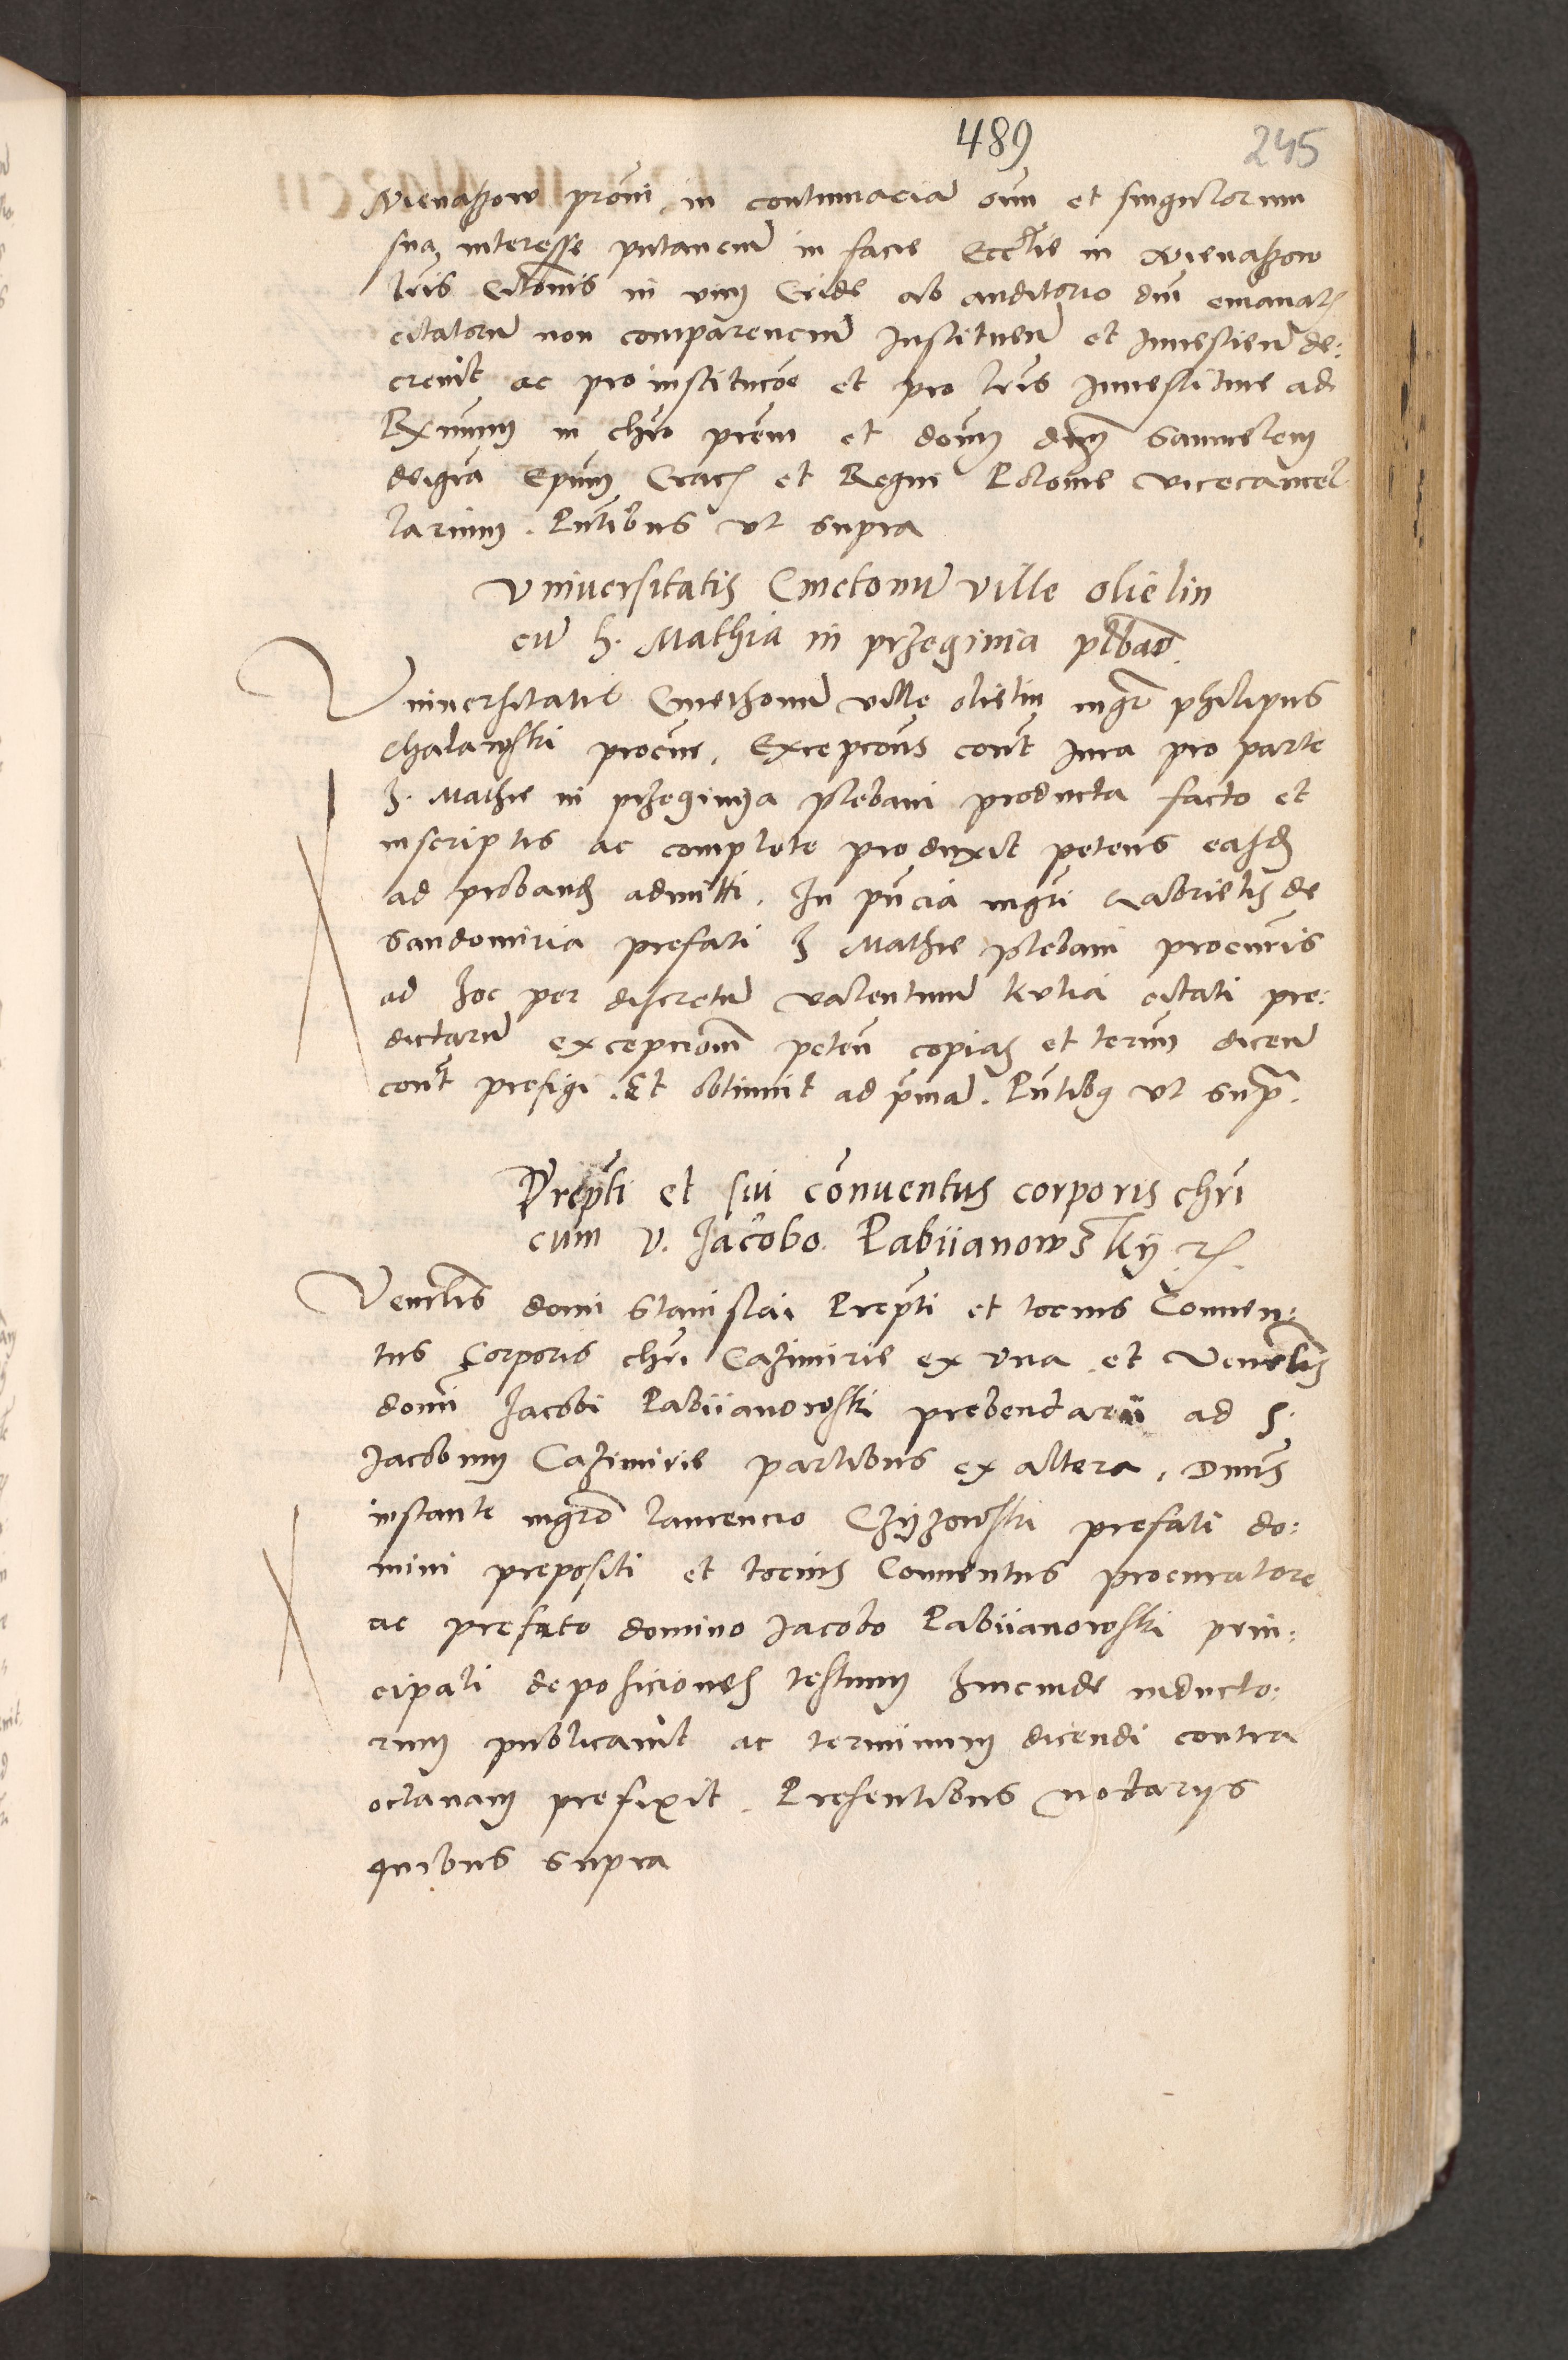 489
245
Nienaszow proni in contumaciam oium et singulorum
sua interesse putancium in facie Ecclie in Nienaszow
lris Citonis in vim Cride ab auditorio dni emanat
citatorum non comparencium Instituen et Inuestien de:
creuit ac pro institucoe et pro lris Inuestiture ad
Rximum in chro prem et donum dnm Samuelem
dei gra Epum Crac et Regni Polonie vicecancel
larium. Pntibus vt supra
Vniuersitatis Cmetonum ville olielin
cum h. Mathia in przeginia plbao.
Vniuersitatis Cmethonum ville olielin mgr philipus
Chalawski procur. Excepcons cont iura pro parte
h. Mathie in przeginya plebani producta facto et
inscriptis ac complete produxit petens easdem
ad proband admitti. In pncia mgri Gabrielis de
Sandomiria prefati h Mathie plebani procuris
ad hoc per discretum valentinum kulia citati pre:
dictarum excepcionum peten copias et termin dicen
cont prefigi. Et obtinuit ad pmam. Pntibus vt supra.
Prepti et sui conuentus corporis chri
cum v. Jacobo Pabiianowskij
Venrlis domi Stanislai Prepti et tocius Conuen:
tus Corporis chri Cazimirie ex vna et Venerlis
domi Jacobi Pabiianowski prebendarii ad S.
Jacobum Cazimirie partibus ex altera. Dnus
instante mgro laurencio Czyzowski prefati do:
mini prepositi et tocius Conuentus procuratore
ac prefato domino Jacobo Pabiianowski prin:
cipali deposiciones testium hincinde inducto:
rum publicauit ac terminum dicendi contra
octauam prefixit. Presentibus notarijs
quibus supra